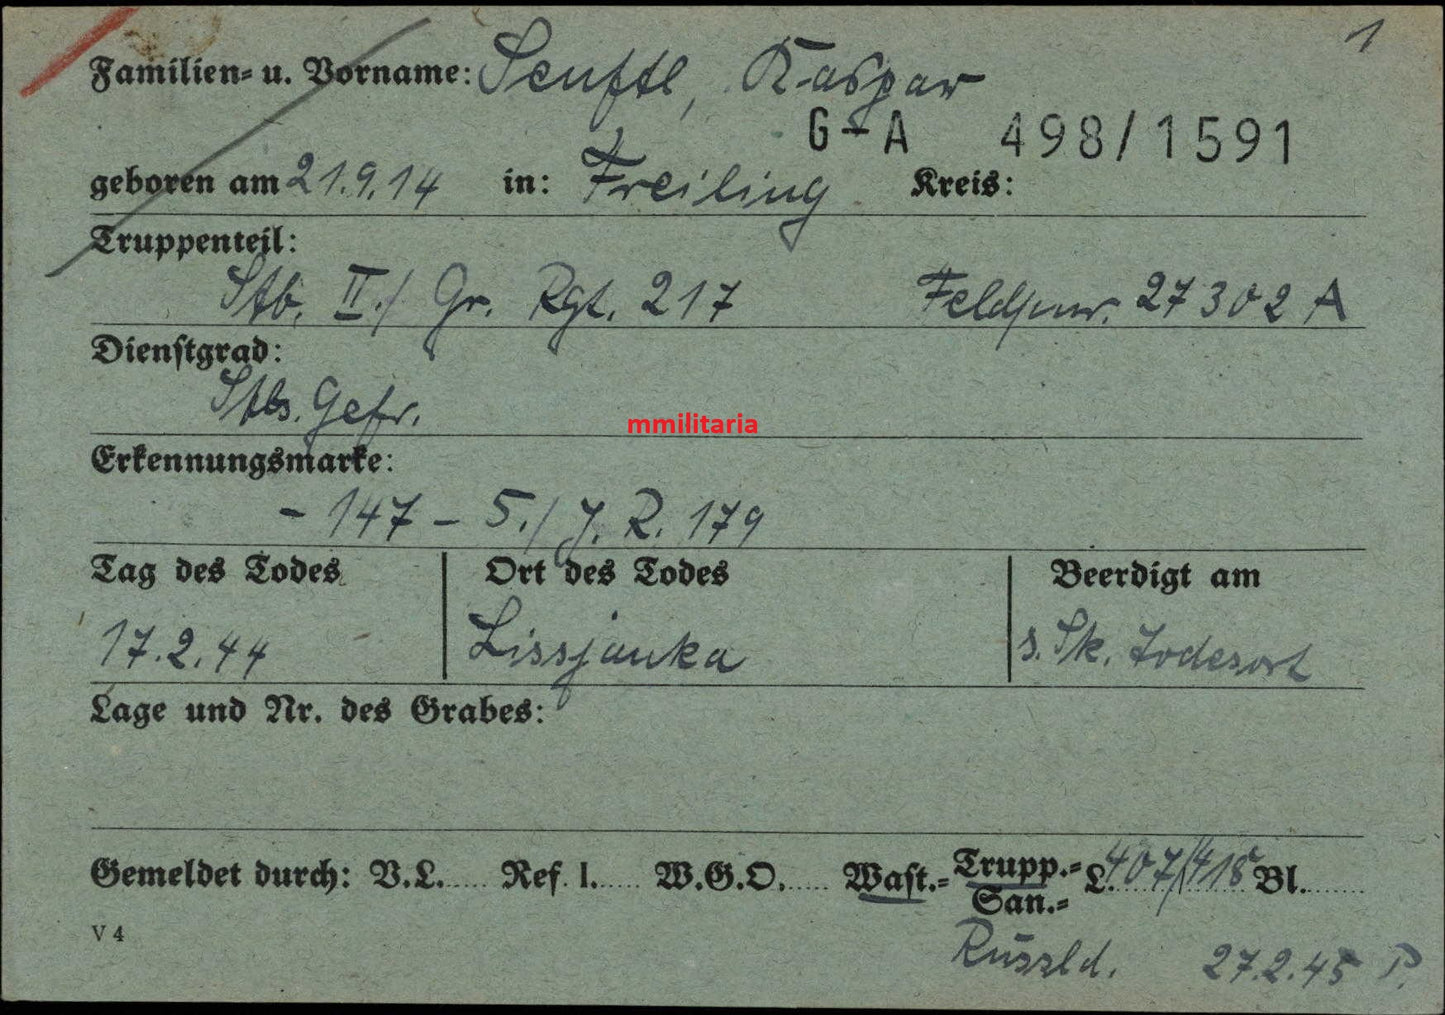 1
Familien- u. Vorname: Senftl, Kaspar
G-A 498/1591
geboren am 21.9.14 in: Freiling Kreis:
Truppenteil:
Stb. II./ Gr. Rgt. 217 Feldpnr. 27302 A
Dienstgrad:
Stbs. Gefr.
mmilitaria
Erkennungsmarke:
- 147 - 5./ J. R. 179
Tag des Todes Ort des Todes Beerdigt am
17.2.44 Lissjanka s. Sk. Todesort
Lage und Nr. des Grabes:
Gemeldet durch: V.L. Ref. I. W.G.O. Wast.- Trupp.- San.- L. 407/418 Bl.
V 4
Russld. 27.2.45 P.